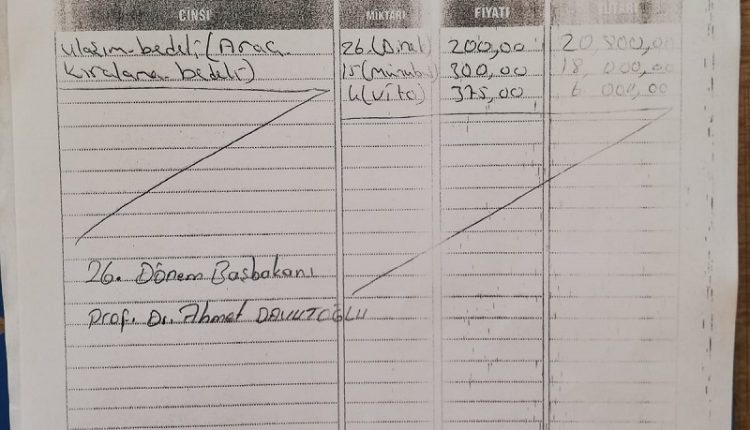 CİNSİ MİKTARI FİYATI TUTARI
Ulaşım bedeli (Araç 26 (Binek) 200,00 20 800,00
Kiralama bedeli) 15 (minübüs) 300,00 18 000,00
4 (Vito) 375,00 6 000,00
26. Dönem Başbakanı
Prof. Dr. Ahmet DAVUTOĞLU